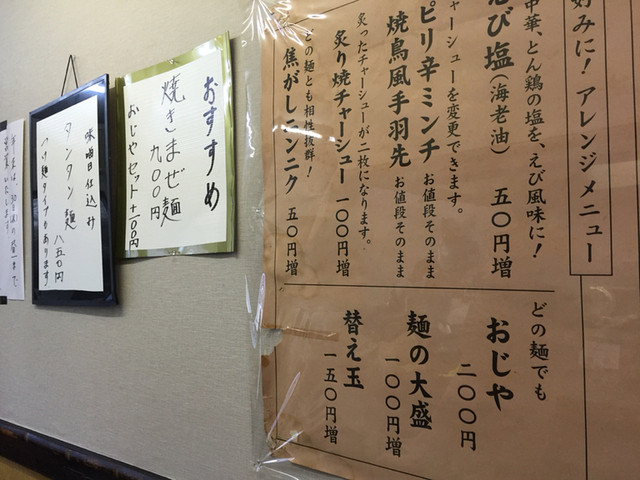 好みに！アレンジメニュー
中華、とん鶏の塩を、えび風味に！
えび塩（海老油） 五〇円増
チャーシューを変更できます。
ピリ辛ミンチ お値段そのまま
焼鳥風手羽先 お値段そのまま
炙ったチャーシューが二枚になります。
炙り焼チャーシュー 一〇〇円増
どの麺とも相性抜群！
焦がしニンニク 五〇円増
どの麺でも
おじや 二〇〇円
麺の大盛 一〇〇円増
替え玉 一五〇円増
おすすめ
焼きまぜ麺
九〇〇円
おじやセット+100円
味噌日仕込み
タンタン麺
八五〇円
つけ麺タイプもあります